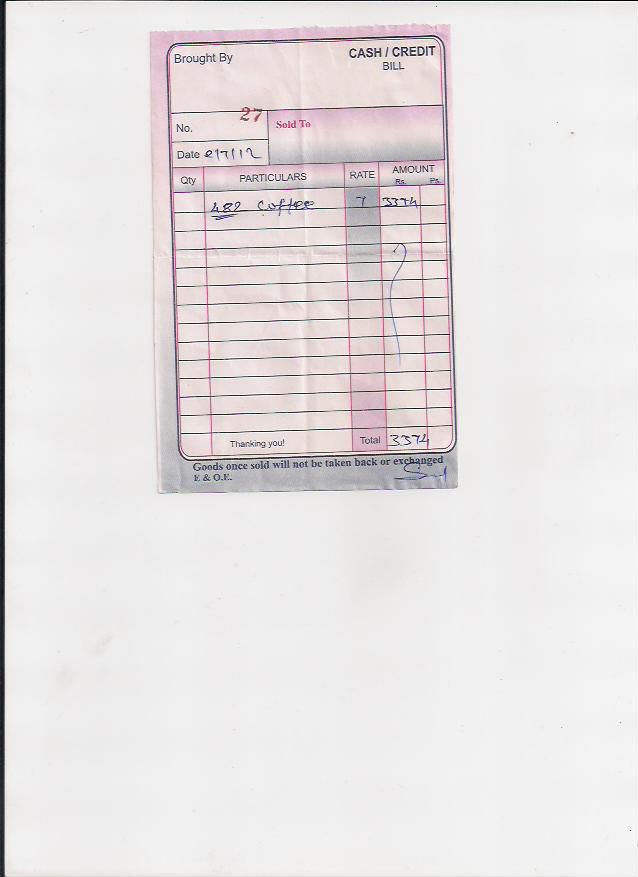 Brought By
CASH / CREDIT
BILL
No. 27
Sold To
Date 2/7/12
Qty PARTICULARS RATE AMOUNT
Rs. Ps.
482 Coffee 7 3374
Thanking you! Total 3374
Goods once sold will not be taken back or exchanged
E & O.E.